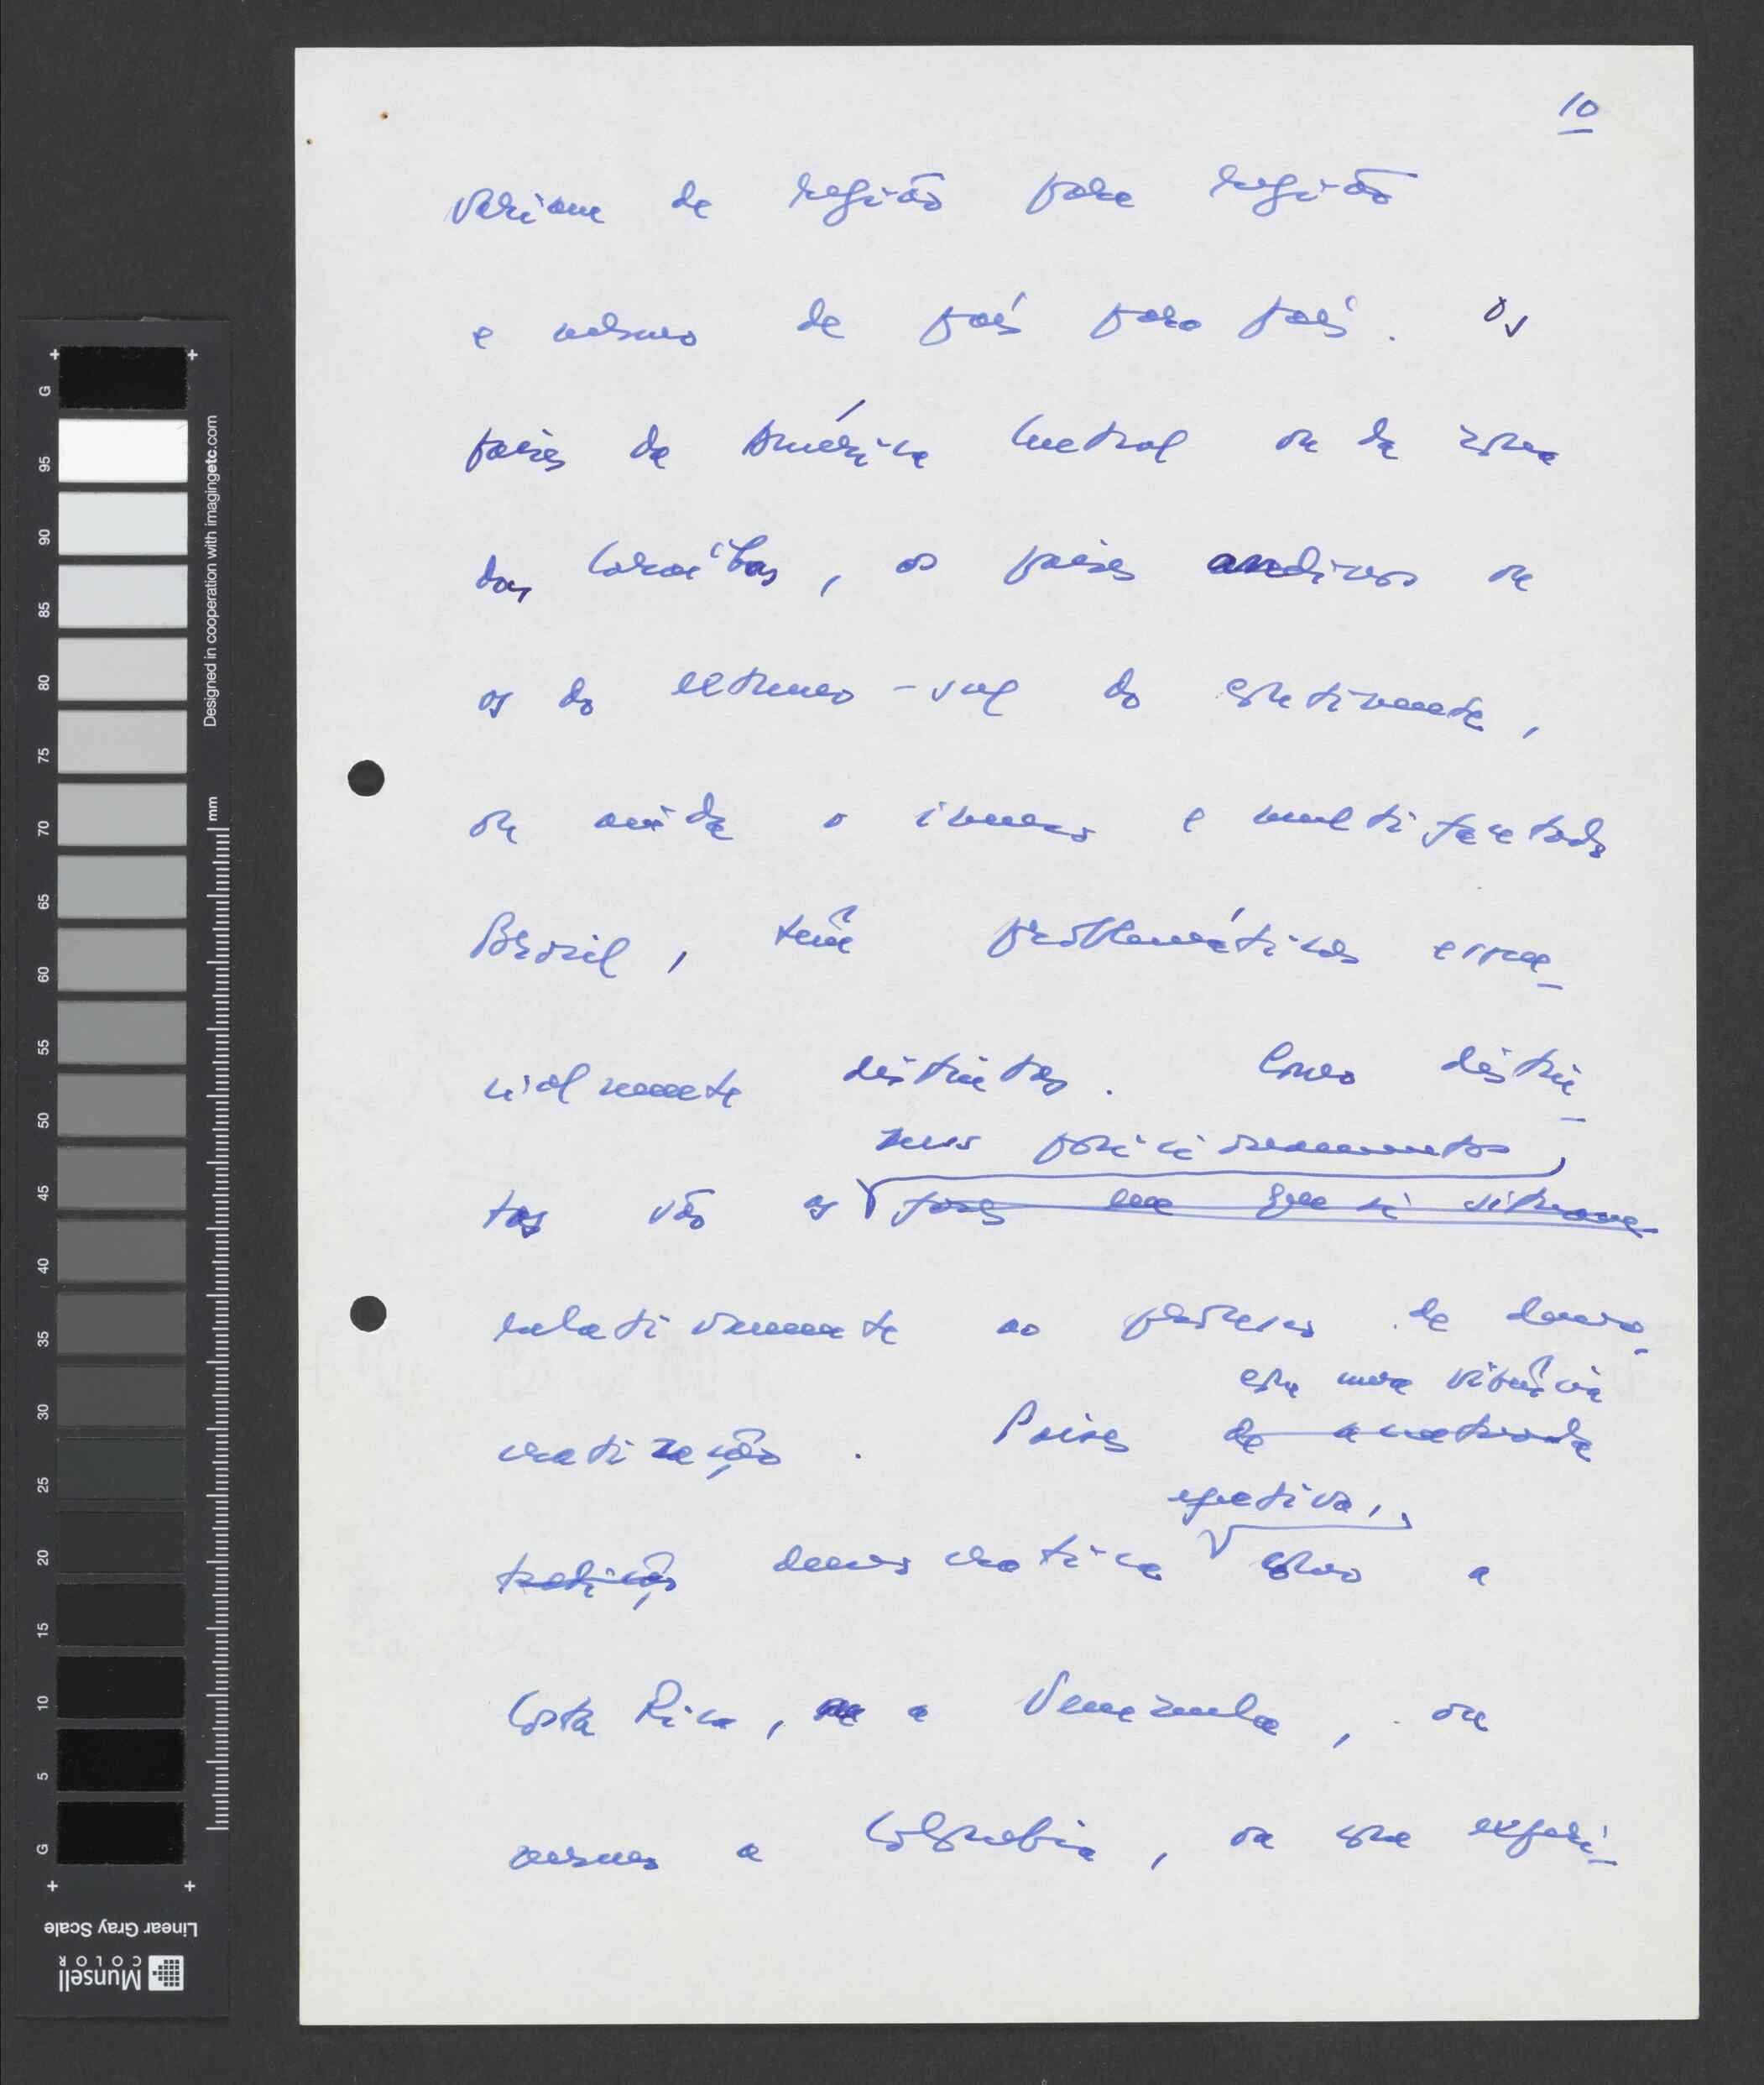 10
variam de região para região
e mesmo de país para país. Os
países da América Central ou da zona
das Caraíbas, os países andinos ou
os do extremo-sul do continente,
ou ainda o imenso e multifacetado
Brasil, têm problemáticas essen-
cialmente distintas. Como distin-
seus posicionamentos,
tos são os fases em que se situam
relativamente ao processo de demo-
com uma vivência
cratização. Países de acentuada
efectiva,
tradição democrática como a
Costa Rica, a Venezuela, ou
mesmo a Colômbia, ou com experi-
G
95
90
85
80
75
70
65
60
55
50
45
40
35
30
25
20
15
10
5
G
mm
Designed in cooperation with imagingetc.com
Linear Gray Scale
Munsell
COLOR